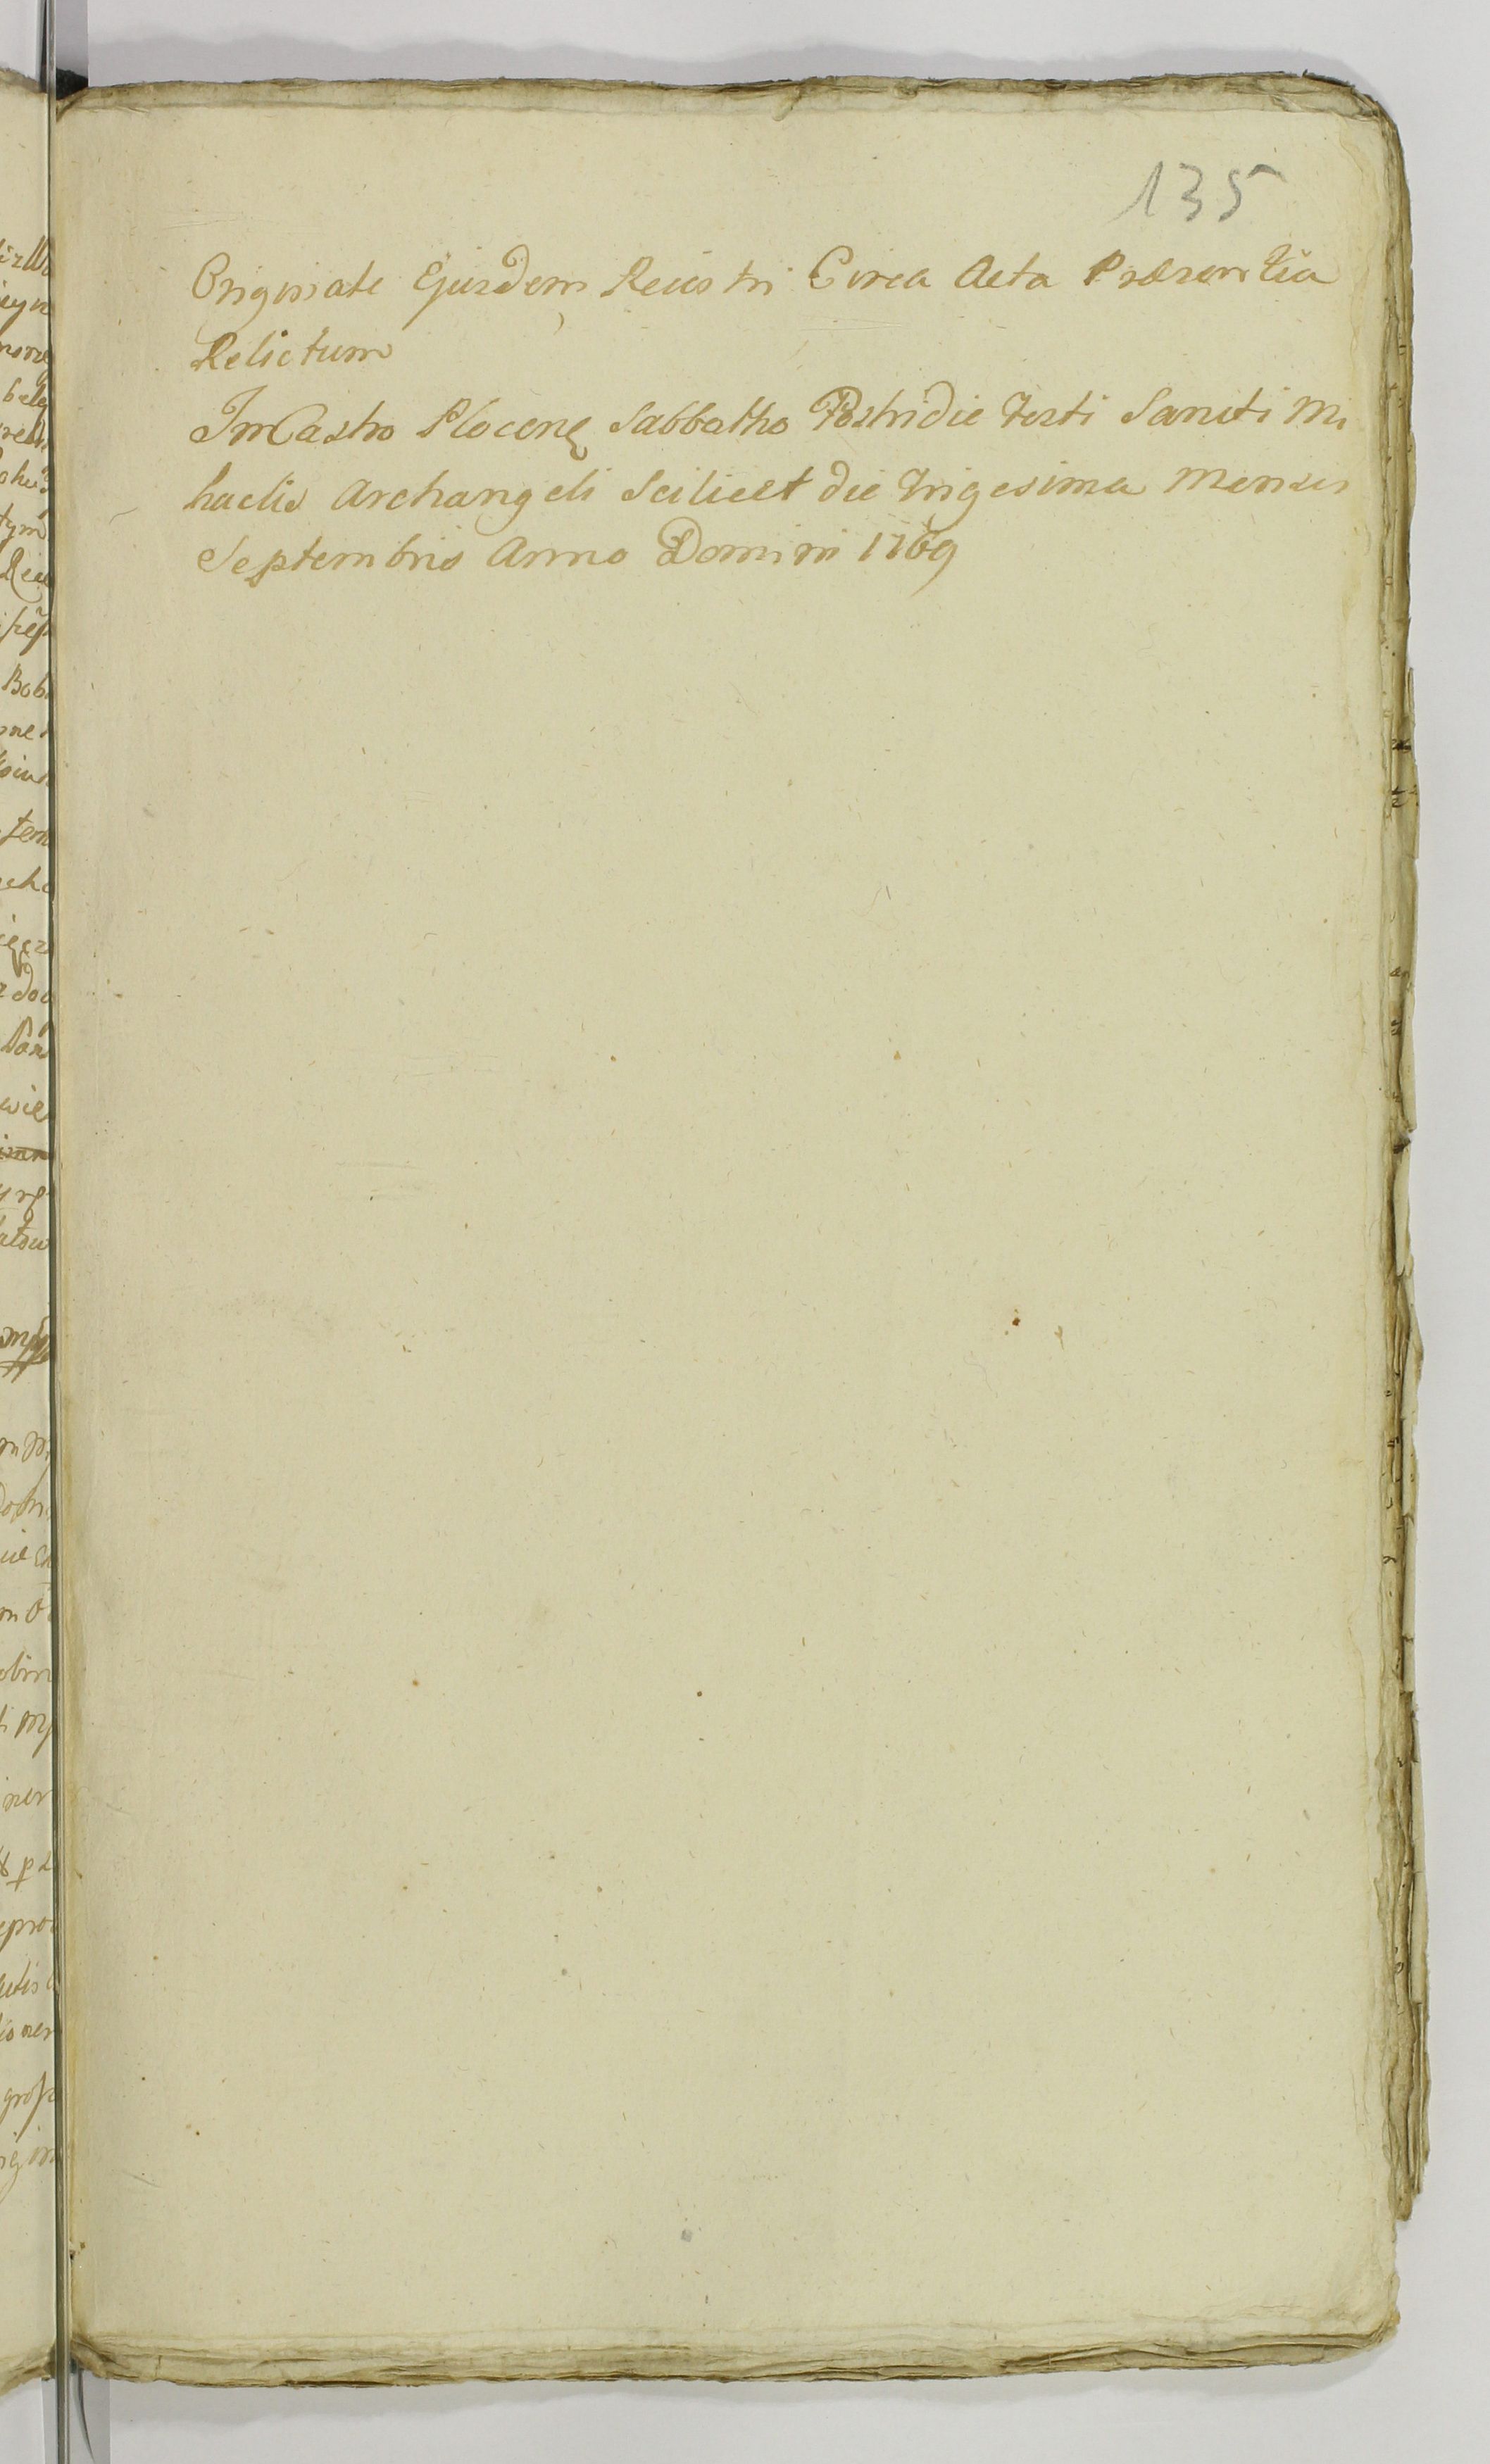 135
Originale Ejusdem Reiestri Circa Acta Præsentia
Relictum
In Castro Plocen Sabbatho Postridie Festi Sancti Mi
haelis Archangeli Scilicet die Trigesima Mensis
Septembris Anno Domini 1769